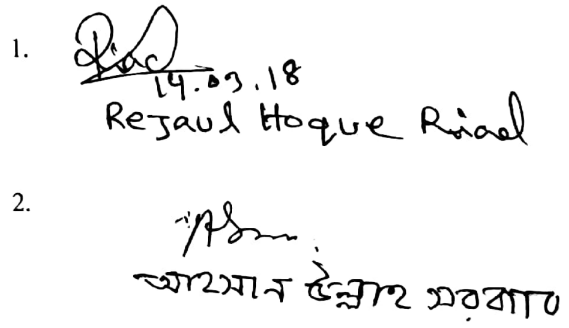 1.
Riad
14.03.18
Rejaul Hoque Riad
2.
আহসান উল্লাহ সরকার